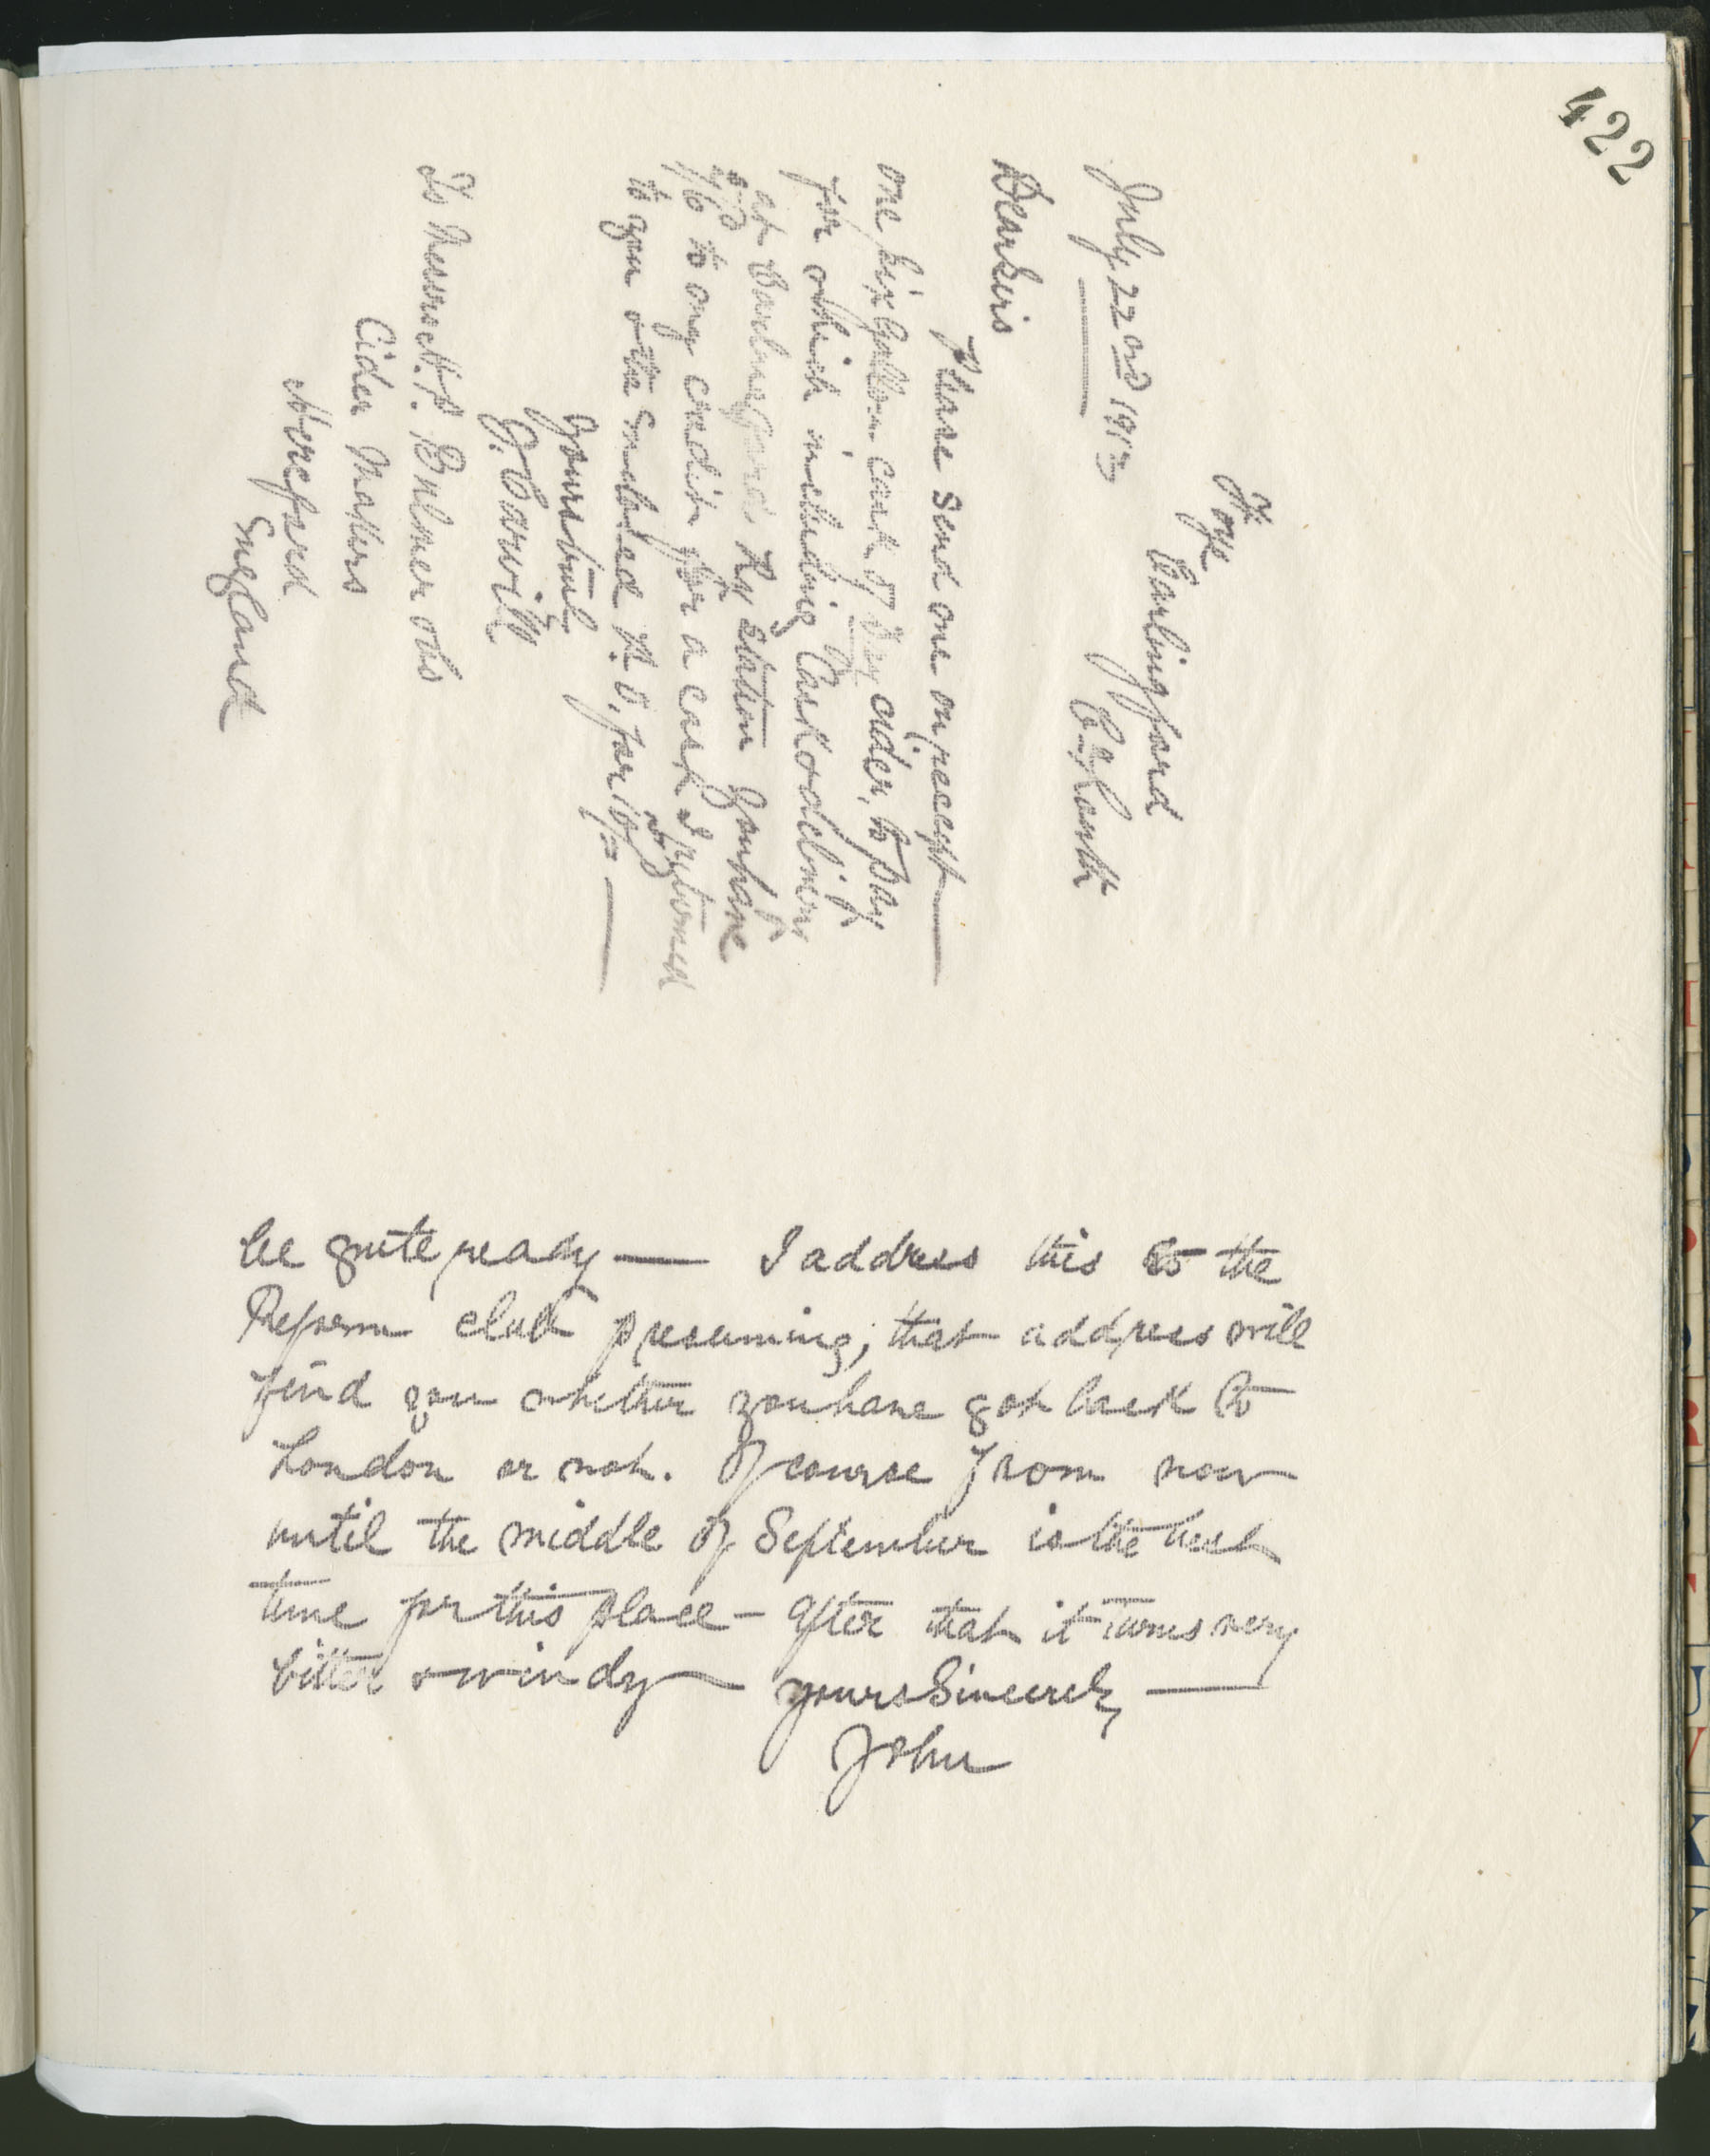 422
Foye
Carlingford
Co Louth
July 22nd 1913
Dear Sirs
Please send me on receipt
one six Gallon cask of Dry cider, to pay
for which including Cask & delivery
at Carlingford Ry station you have
7/6 to my credit for a cask I returned
to you & the Enclosed P. O. for
Yours truly
To Messrs H. P. Bulmer & Co
Cider Makers
Hereford
England
be quite ready — I address this to the
Reform club presuming, that address will
find you whether you have got back to
London or not. Of course from now
until the middle of September is the best
time for this place — After that it turns very
bitter & windy — yours Sincerely —
John